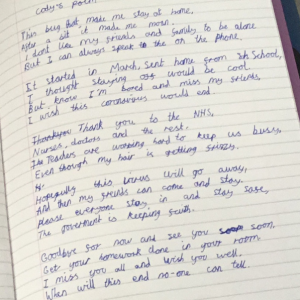 cody's poem
This bug that made me stay at home,
After a bit it made me moan.
I dont like my friends and family to be alone
But I can always speak to the on the phone.
It started in March, Sent home from School,
I thought staying off would be cool.
But know I'm bored and miss my friends,
I wish this coronavirus would end.
Thankyou Thank you to the NHS,
Nurses, doctors and the rest.
The Teachers are working hard to keep us busy,
Even though my hair is getting frizzy.
Hopefully this virus will go away,
And then my friends can come and stay.
please everyone stay in and stay safe,
The goverment is keeping faith.
Goodbye for now and see you soon,
Get your homework done in your room.
I miss you all and wish you well,
When will this end no-one can tell.